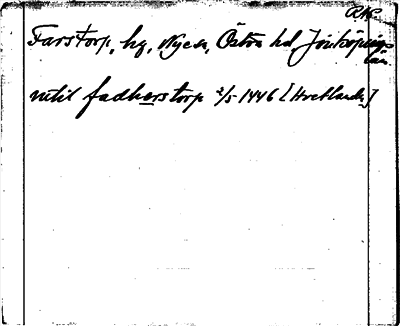 RAp.
Farstorp, hg, Nye sn, Östra hd, Jönköpings
län
vutil fadherstorp 2/5 1446 [Hvetlanda]